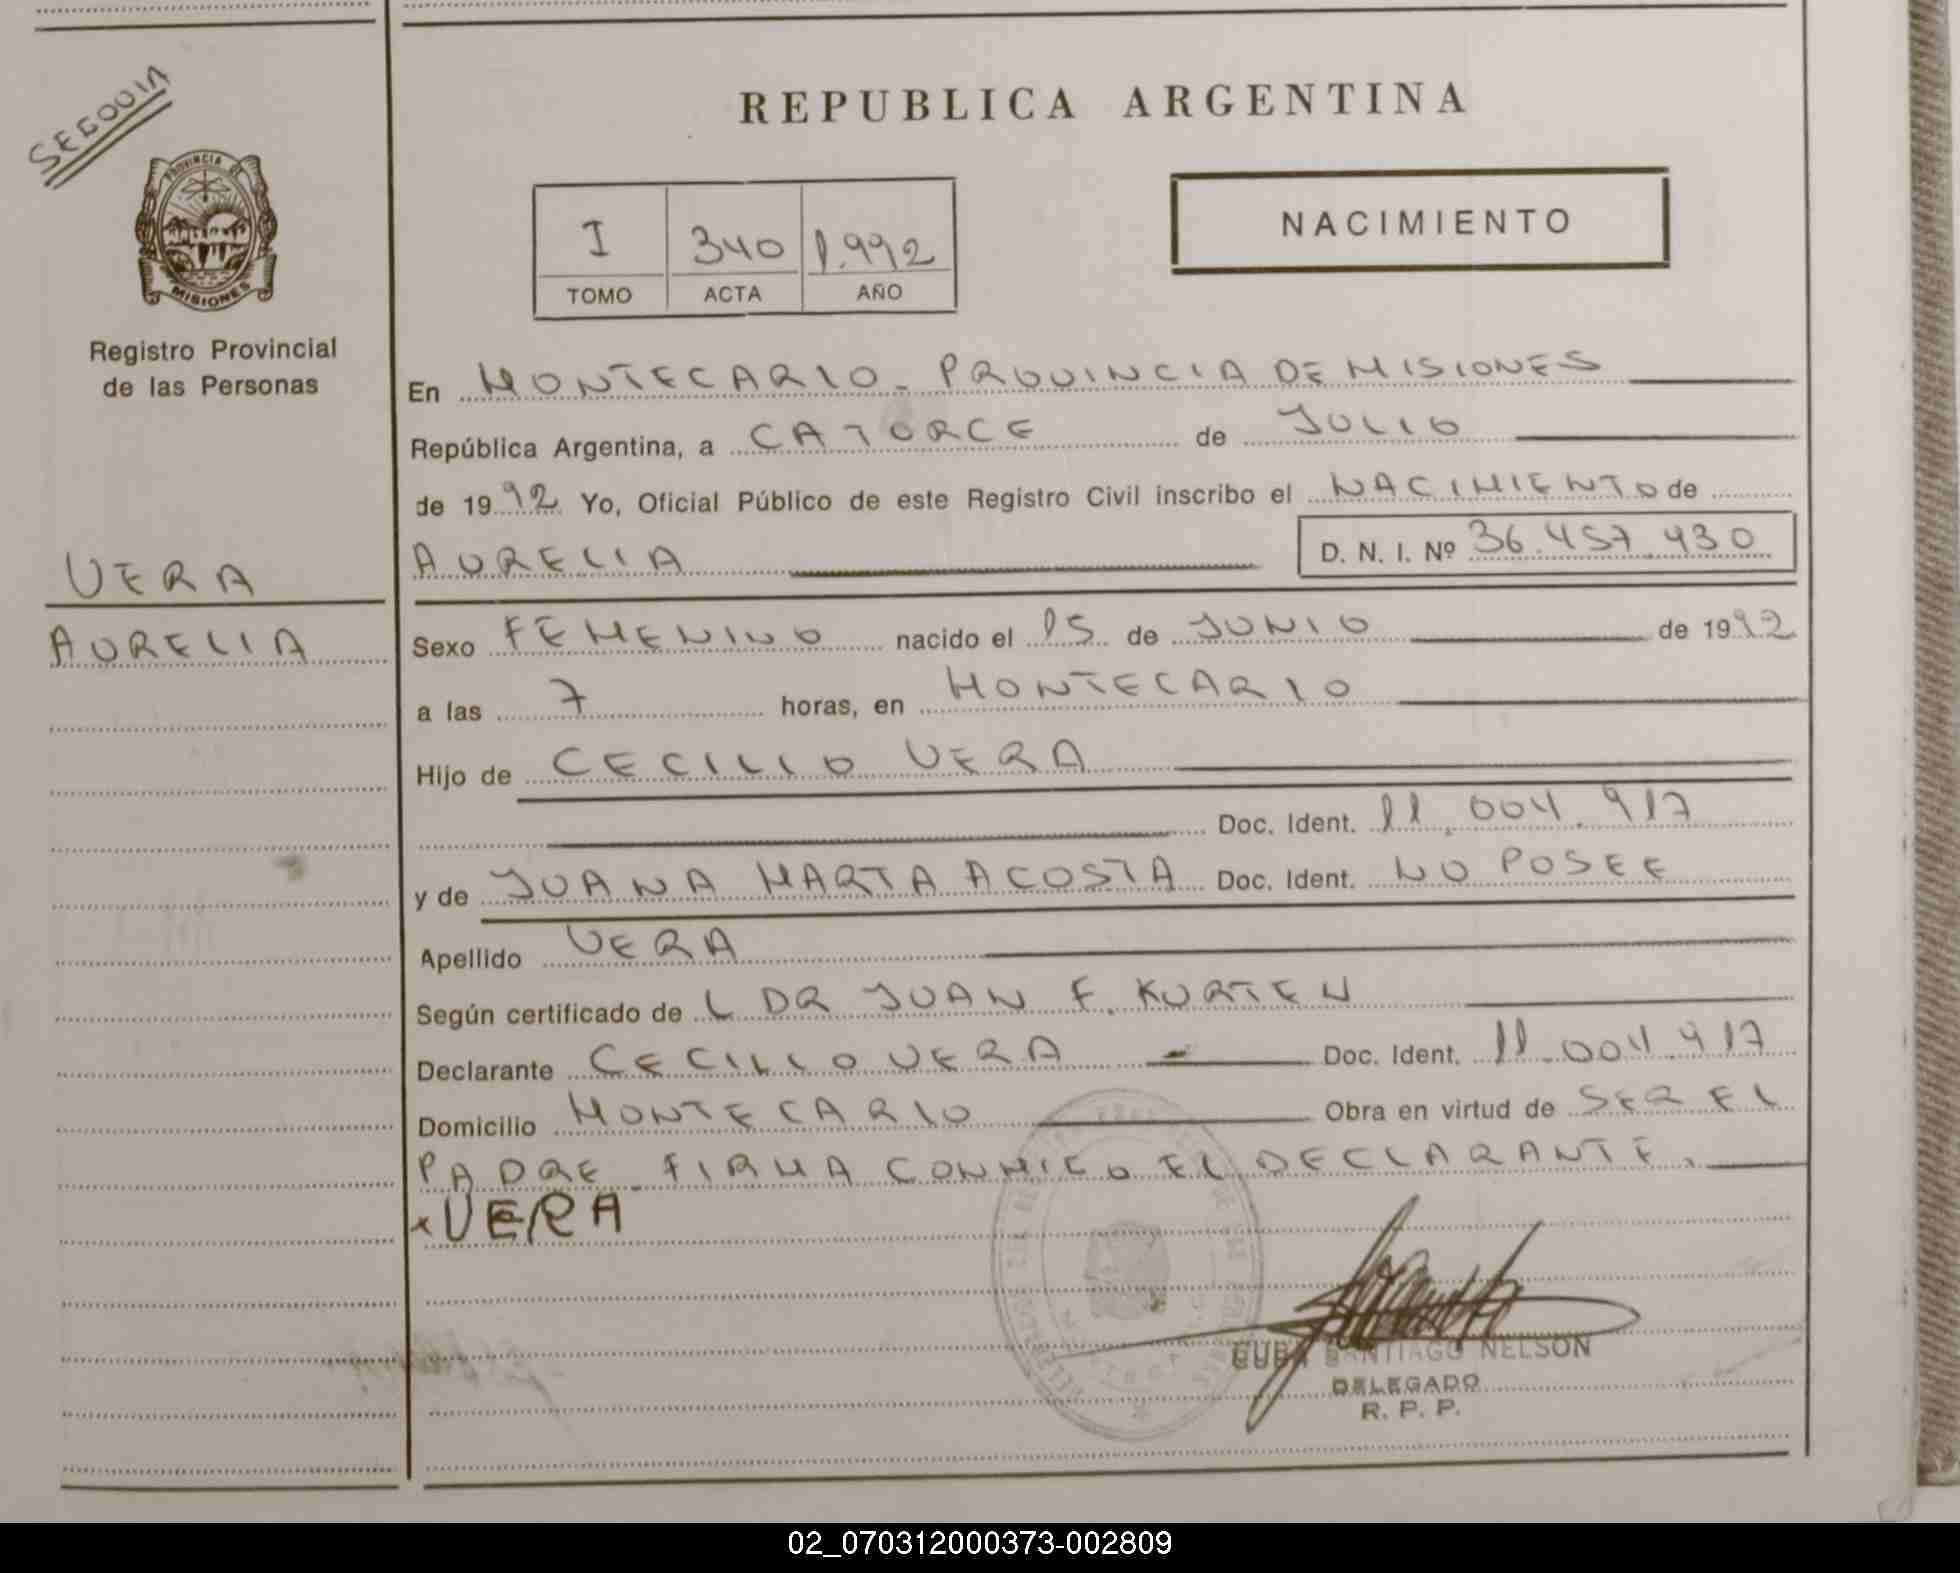 SEGOVIA
PROVINCIA DE
MISIONES
Registro Provincial
de las Personas
VERA
AURELIA
REPUBLICA ARGENTINA
I 340 1.992
TOMO ACTA AÑO
NACIMIENTO
En MONTECARLO - PROVINCIA DE MISIONES
República Argentina, a CATORCE de JULIO
de 1992 Yo, Oficial Público de este Registro Civil inscribo el NACIMIENTO de
AURELIA D. N. I. Nº 36.457.430
Sexo FEMENINO nacido el 15 de JUNIO de 1992
a las 7 horas, en MONTECARLO
Hijo de CECILIO VERA
Doc. Ident. 11.004.917
y de JUANA MARTA ACOSTA Doc. Ident. NO POSEE
Apellido VERA
Según certificado de L DR JUAN F. KURTEN
Declarante CECILIO VERA Doc. Ident. 11.004.917
Domicilio MONTECARLO Obra en virtud de SER EL
PADRE - FIRMA CONMIGO EL DECLARANTE.
x VERA
CUBA SANTIAGO NELSON
DELEGADO
R. P. P.
02_070312000373-002809